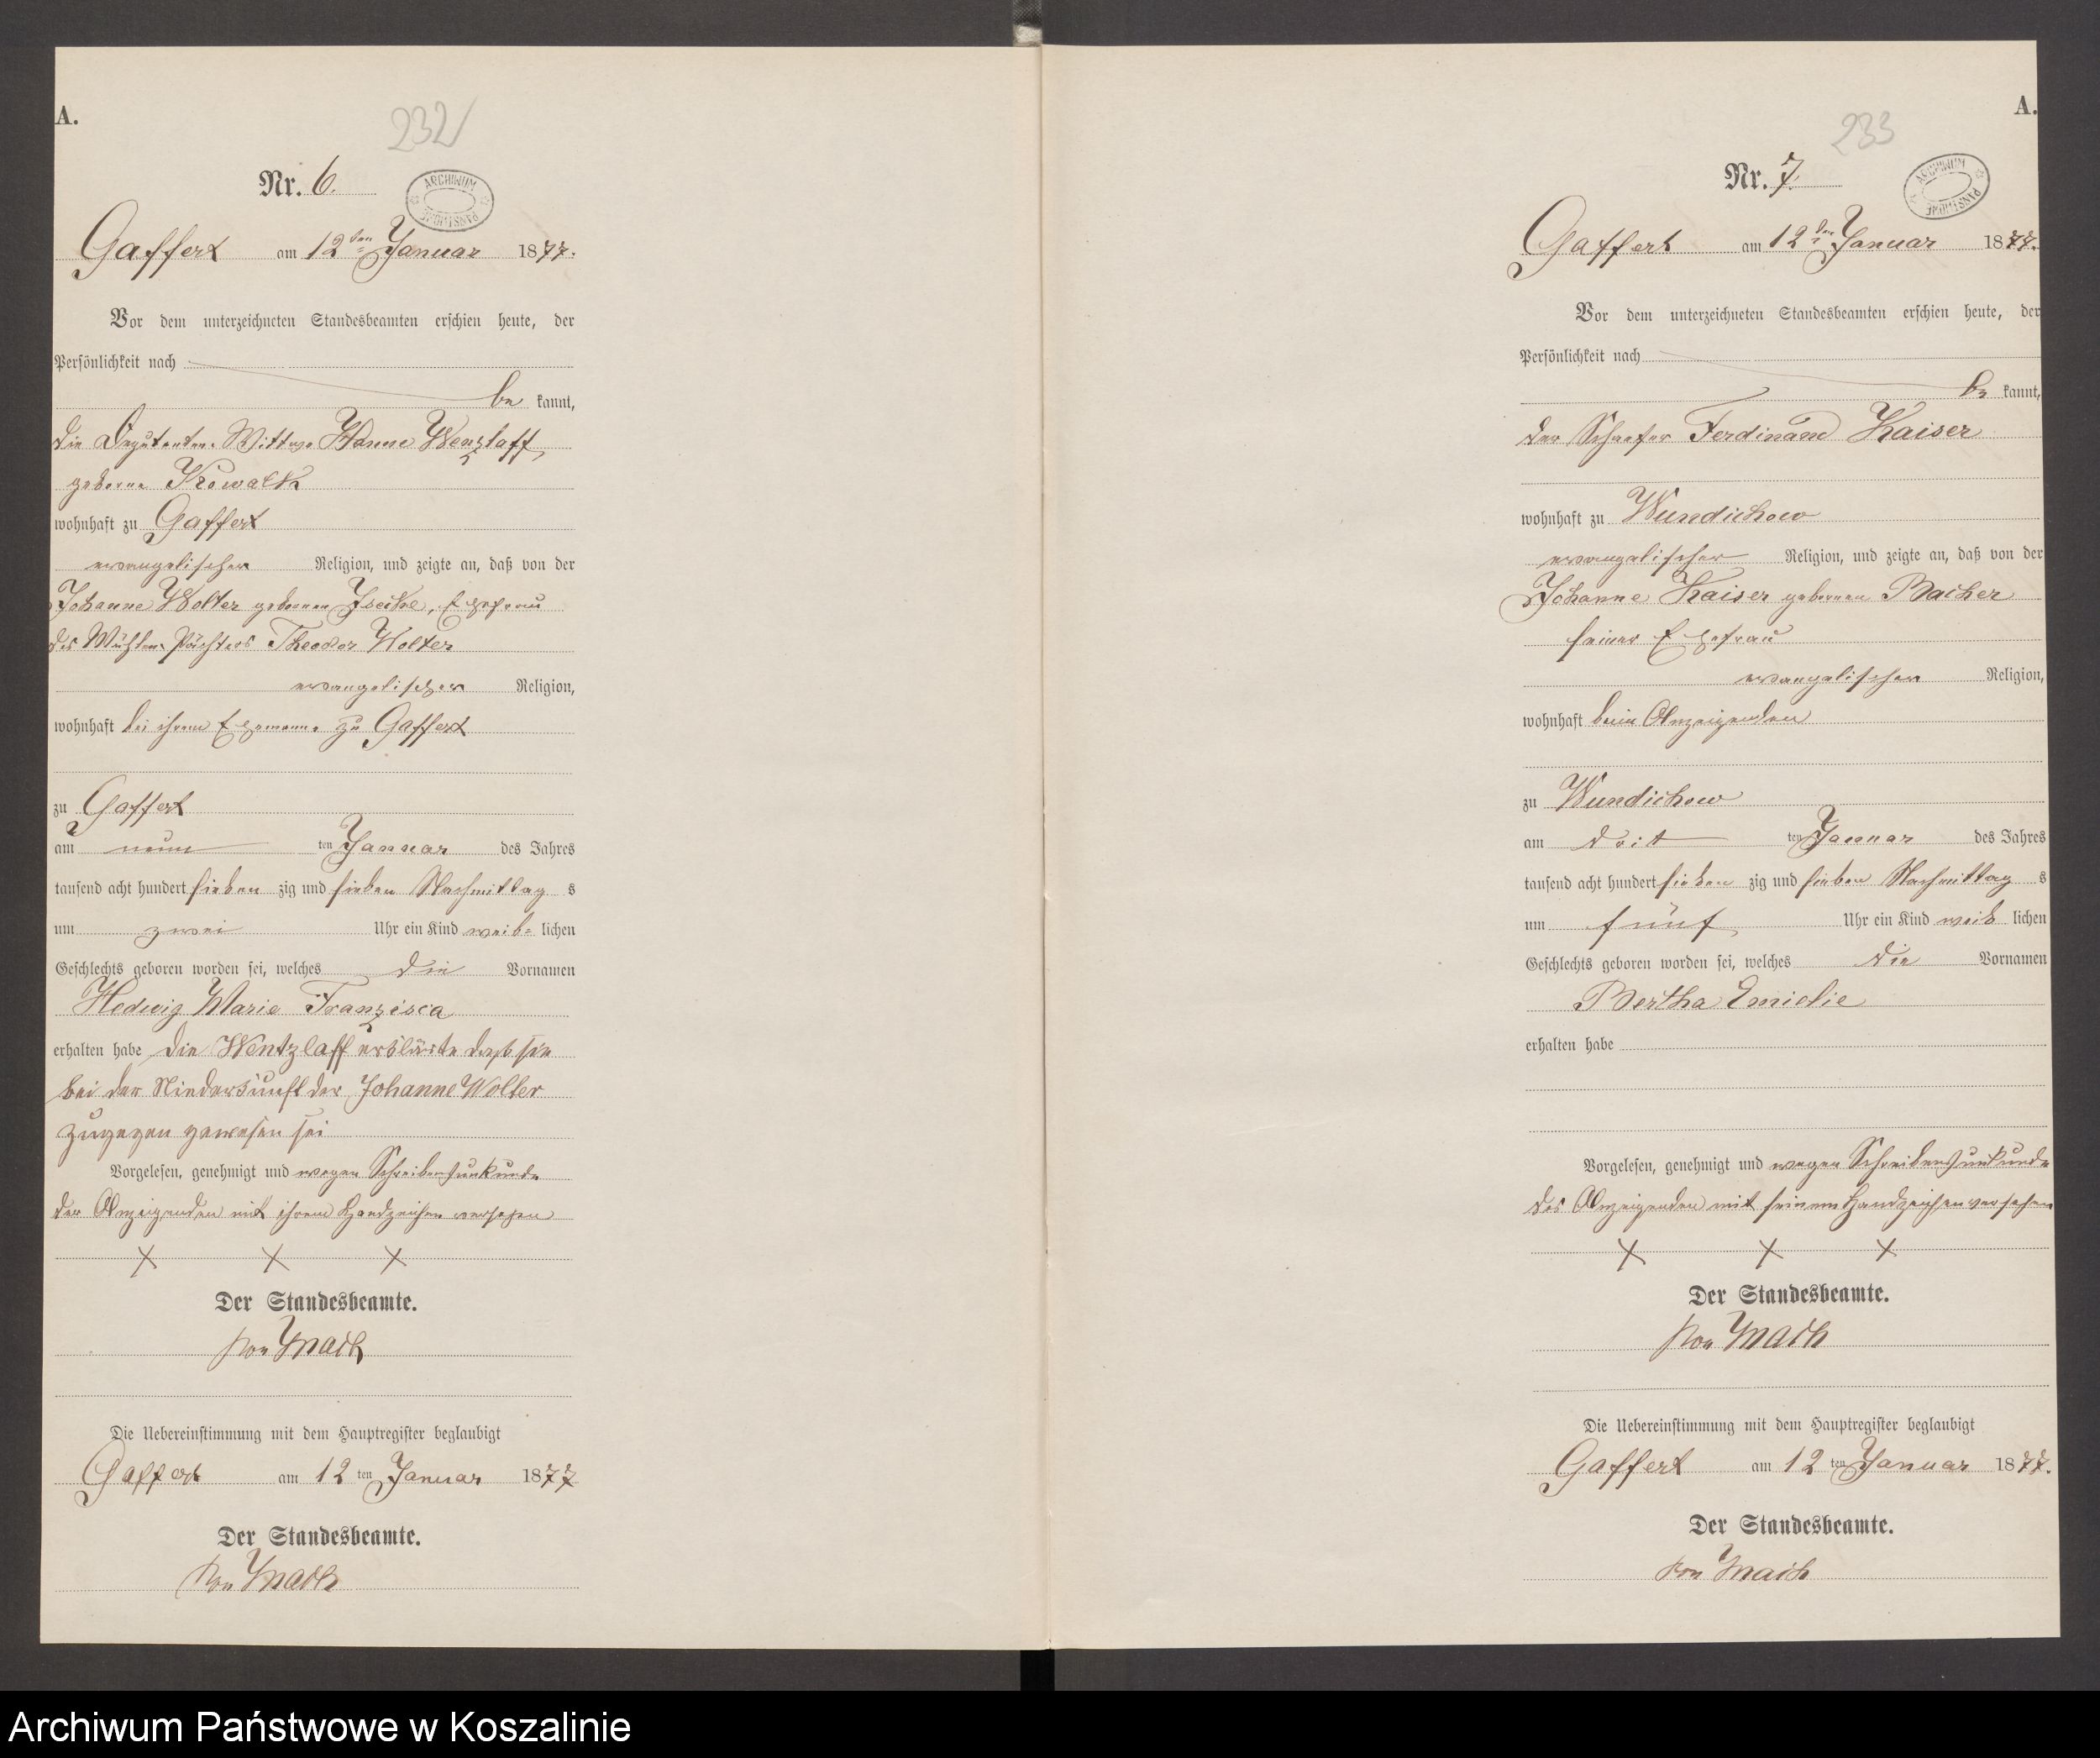 A.
232
Nr. 6.
ARCHIWUM PAŃSTWOWE
Gaffert am 12ten Januar 1877.
Vor dem unterzeichneten Standesbeamten erschien heute, der
Persönlichkeit nach
be kannt,
die Deputanten-Wittwe Hanne Wenzlaff,
geborne Kowalk
wohnhaft zu Gaffert
evangelischer Religion, und zeigte an, daß von der
Johanne Wolter gebornen, Ehefrau
des Mühlen-Pächters Theodor Wolter
evangelischer Religion,
wohnhaft bei ihrem Ehemanne zu Gaffert
zu Gaffert
am neun ten Januar des Jahres
tausend acht hundert sieben zig und sieben Nachmittag s
um zwei Uhr ein Kind weib- lichen
Geschlechts geboren worden sei, welches die Vornamen
Hedwig Marie Franzisca
erhalten habe die Wentzlaff erklärte daß sie
bei der Niederkunft der Johanne Wolter
zugegen gewesen sei
Vorgelesen, genehmigt und wegen Schreibensunkunde
der Anzeigenden mit ihrem Handzeichen versehen
X X X
Der Standesbeamte.
von
Die Uebereinstimmung mit dem Hauptregister beglaubigt
Gaffert am 12 ten Januar 1877
Der Standesbeamte.
von
A.
233
Nr. 7.
ARCHIWUM PAŃSTWOWE
Gaffert am 12ten Januar 1877.
Vor dem unterzeichneten Standesbeamten erschien heute, der
Persönlichkeit nach
be kannt,
der Schaefer Ferdinand Kaiser
wohnhaft zu Wundichow
evangelischer Religion, und zeigte an, daß von der
Johanne Kaiser gebornen Bacher
seiner Ehefrau
evangelischer Religion,
wohnhaft beim Anzeigenden
zu Wundichow
am drit ten Januar des Jahres
tausend acht hundert sieben zig und sieben Nachmittag s
um fünf Uhr ein Kind weib lichen
Geschlechts geboren worden sei, welches die Vornamen
Bertha Emielie
erhalten habe
Vorgelesen, genehmigt und wegen Schreibensunkunde
des Anzeigenden mit seinem Handzeichen versehen
X X X
Der Standesbeamte.
von
Die Uebereinstimmung mit dem Hauptregister beglaubigt
Gaffert am 12 ten Januar 1877.
Der Standesbeamte.
von
Archiwum Państwowe w Koszalinie